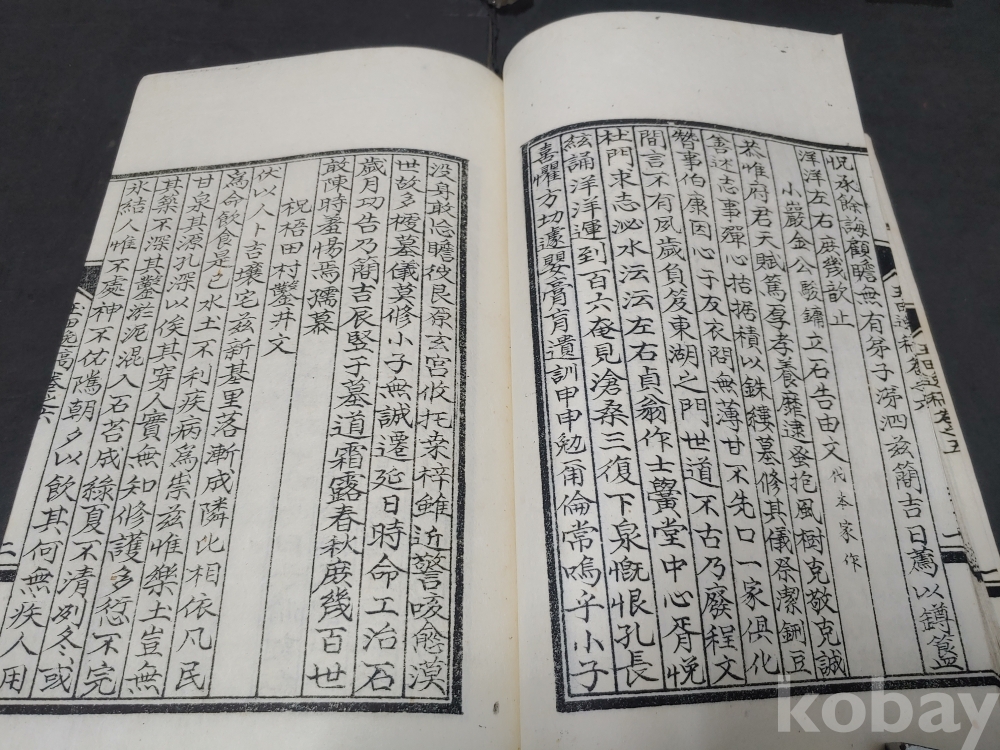 況承餘誨顧瞻無有弟子涕泗玆蕳吉日薦以罇簋
洋洋左右庶幾歆止
小巖金公駿鏞立石告由文 代本家作
恭惟府君天賦篤厚孝養靡逮蚤抱風樹克敬克誠
善述志事殫心拮据積以銖縷墓修其儀祭潔鉶豆
贊事伯康因心子友衣問無薄甘不先口一家俱化
間言不有夙歲負笈東湖之門世道不古乃廢程文
杜門求志泌水沄沄左右貞翁作士黌堂中心胥悅
絃誦洋洋運到百六奄見滄桑三復下泉慨恨孔長
喜懼方切遽嬰膏肓遺訓申申勉甭倫常嗚乎小子
没身敢忘瞻彼艮原玄宮攸托桒梓雖近警咳愈漠
世故多櫌墓儀莫修小子無誠遷延日時命工治石
歲月功告乃蕳吉辰竪于墓道霜露春秋庶幾百世
敢陳時羞惕焉孺慕
祝梧田村鑿井文
伏以人卜吉壤宅玆新基里落漸成隣比相依凡民
爲命飮食是已水土不利疾病爲祟玆惟樂土豈無
甘泉其源孔深以俟其穿人實無知修護多愆不完
其築不深其鑿淤泥混入石苔成綠夏不清冽冬或
氷結人惟不虔神不佑隲朝夕以飮其何無疾人用
二
一
kobay